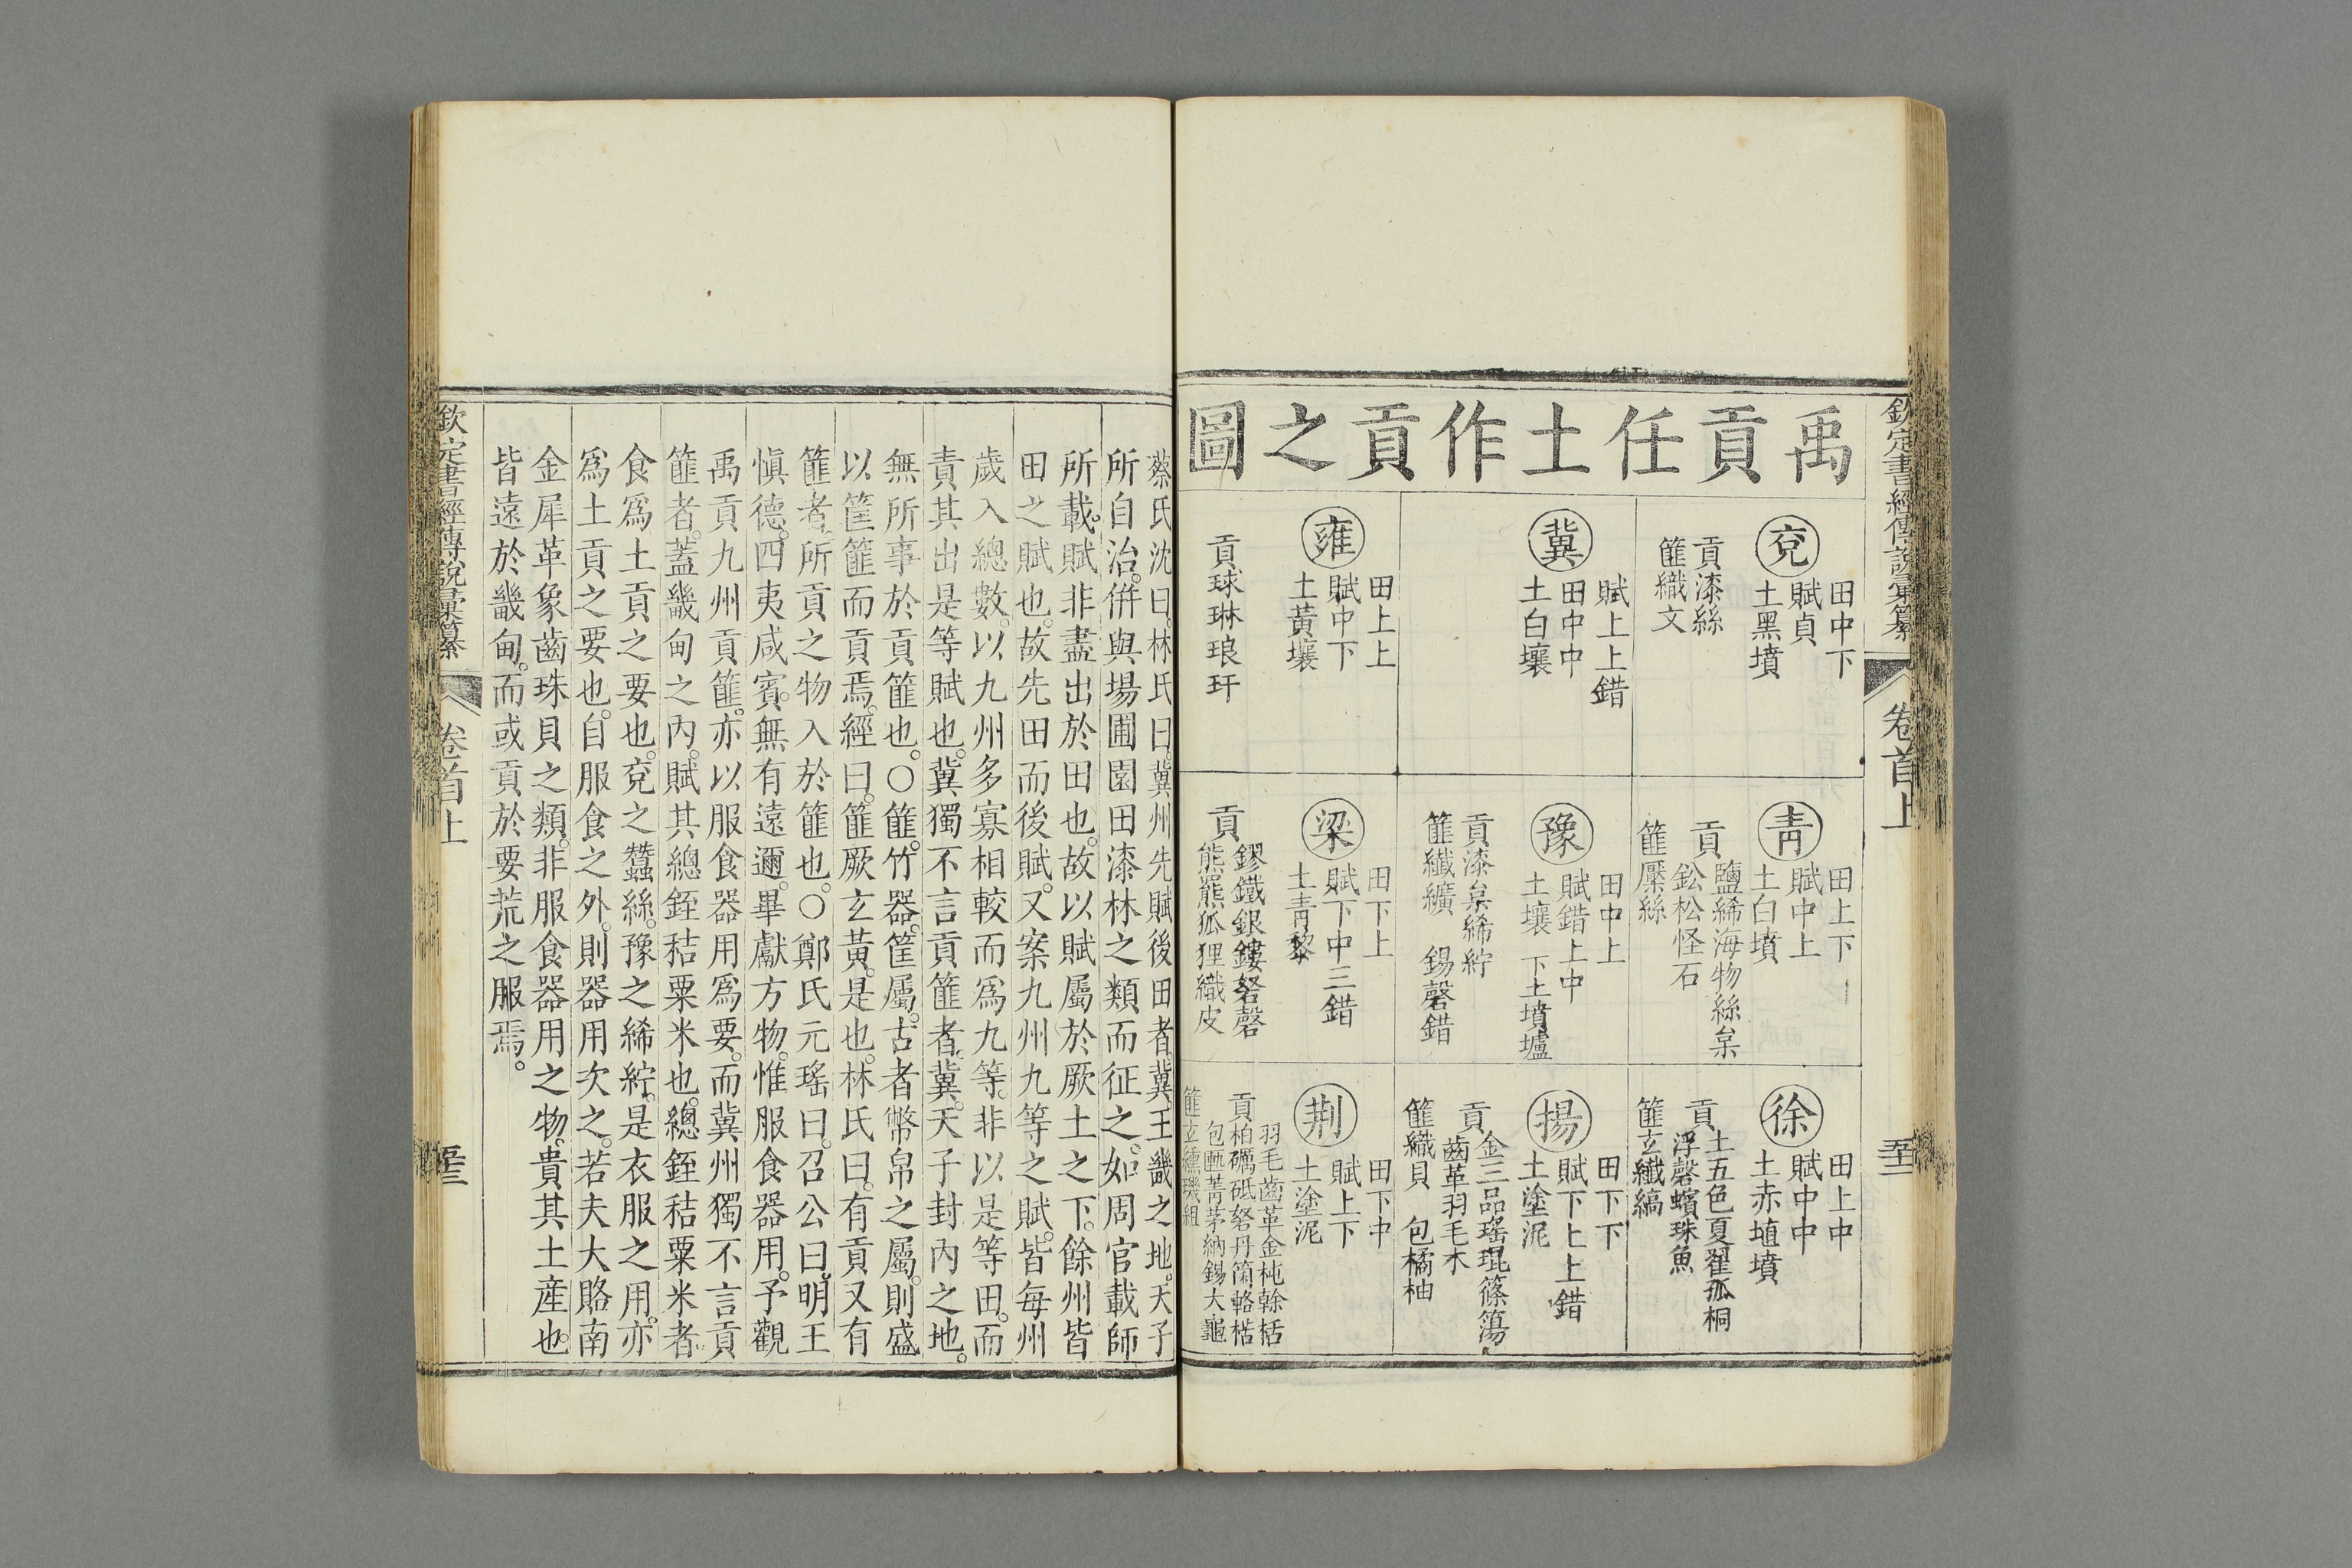 欽定書經傳說彙纂
卷首上
禹貢任土作貢之圖
兗
田中下
賦貞
土黑墳
貢漆絲
篚織文
青
田上下
賦中上
土白墳
貢
鹽絺海物絲枲
鈆松怪石
篚檿絲
徐
田上中
賦中中
土赤埴墳
貢
土五色夏翟孤桐
浮磬蠙珠魚
篚玄纖縞
冀
賦上上錯
田中中
土白壤
豫
田中上
賦錯上中
土壤 下土墳壚
貢漆枲絺紵
篚纖纊 錫磬錯
揚
田下下
賦下上上錯
土塗泥
貢
金三品瑤琨篠簜
齒革羽毛木
篚織貝 包橘柚
雍
田上上
賦中下
土黃壤
貢球琳琅玕
梁
田下上
賦下中三錯
土青黎
貢
鏐鐵銀鏤砮磬
熊羆狐狸織皮
荆
田下中
賦上下
土塗泥
貢
羽毛齒革金杶榦栝
柏礪砥砮丹箘簵楛
包匭菁茅納錫大龜
篚玄纁璣組
蔡氏沈曰。林氏曰。冀州先賦後田者。冀王畿之地。天子
所自治。併與場圃園田漆林之類而征之。如周官載師
所載。賦非盡出於田也。故以賦屬於厥土之下。餘州皆
田之賦也。故先田而後賦。又案九州九等之賦。皆每州
歲入總數。以九州多寡相較而為九等。非以是等田。而
責其出是等賦也。冀獨不言貢篚者。冀。天子封內之地。
無所事於貢篚也。○篚。竹器。筐屬。古者幣帛之屬。則盛
以筐篚而貢焉。經曰。篚厥玄黃。是也。林氏曰。有貢又有
篚者。所貢之物入於篚也。○鄭氏元瑤曰。召公曰。明王
慎德。四夷咸賓。無有遠邇。畢獻方物。惟服食器用。予觀
禹貢九州貢篚。亦以服食器用為要。而冀州獨不言貢
篚者。蓋畿甸之內。賦其總銍秸粟米也。總銍秸粟米者。
食為土貢之要也。兗之蠶絲。豫之絺紵。是衣服之用。亦
為土貢之要也。自服食之外。則器用次之。若夫大賂南
金犀革象齒珠貝之類。非服食器用之物。貴其土產也。
皆遠於畿甸。而或貢於要荒之服焉。
欽定書經傳說彙纂
卷首上